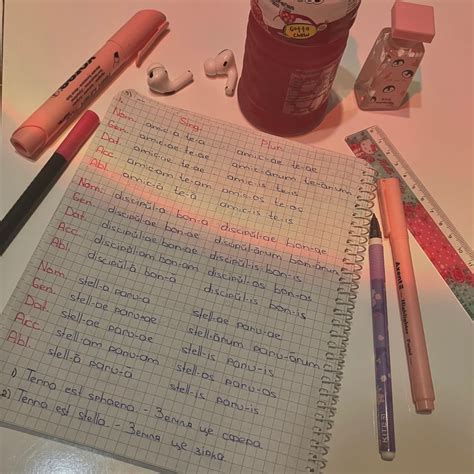 1.
Sing. Plur.
Nom. amic-a te-a amic-ae te-ae
Gen. amic-ae te-ae amic-ārum te-ārum
Dat. amic-ae te-ae amic-is te-is
Acc. amic-am te-am amic-os te-os
Abl. amic-ā te-ā amic-is te-is
Nom. discipŭl-a bon-a discipŭl-ae bon-ae
Gen. discipŭl-ae bon-ae discipŭl-ārum bon-ārum
Dat. discipŭl-ae bon-ae discipŭl-is bon-is
Acc. discipŭl-am bon-am discipŭl-os bon-os
Abl. discipŭl-ā bon-ā discipŭl-is bon-is
Nom. stell-a parv-a stell-ae parv-ae
Gen. stell-ae parv-ae stell-ārum parv-ārum
Dat. stell-ae parv-ae stell-is parv-is
Acc. stell-am parv-am stell-os parv-os
Abl. stell-ā parv-a stell-is parv-is
1) Terra est sphaera - Земля це сфера
2) Terra est stella - Земля це зірка